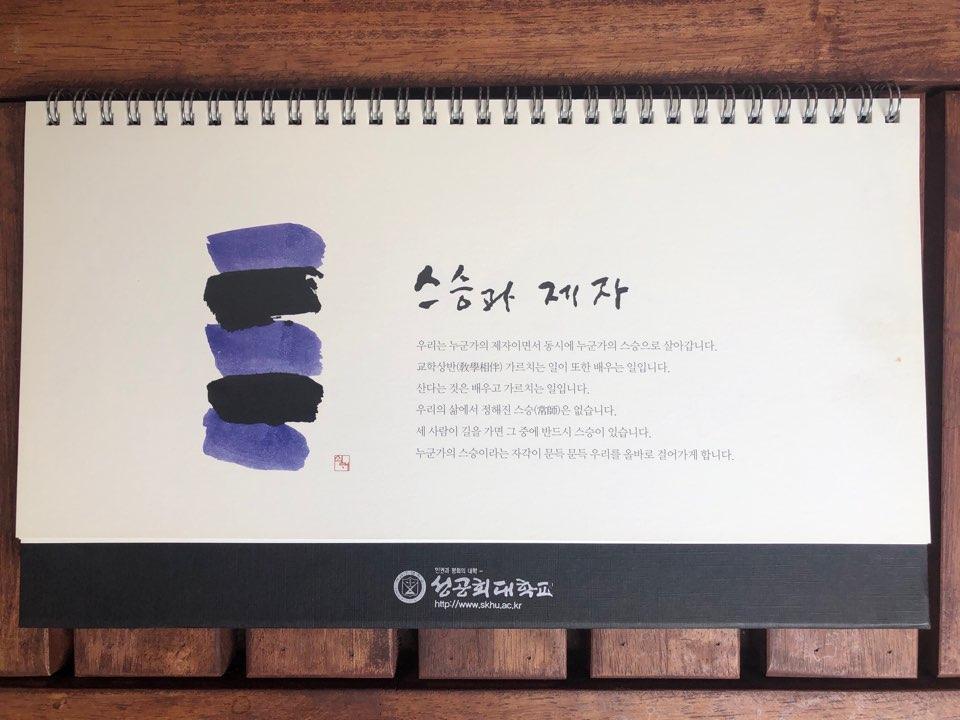 스승과 제자
우리는 누군가의 제자이면서 동시에 누군가의 스승으로 살아갑니다.
교학상반(敎學相伴) 가르치는 일이 또한 배우는 일입니다.
산다는 것은 배우고 가르치는 일입니다.
우리의 삶에서 정해진 스승(常師)은 없습니다.
세 사람이 길을 가면 그 중에 반드시 스승이 있습니다.
누군가의 스승이라는 자각이 문득 문득 우리를 올바로 걸어가게 합니다.
인권과 평화의 대학 –
성공회대학교
http://www.skhu.ac.kr